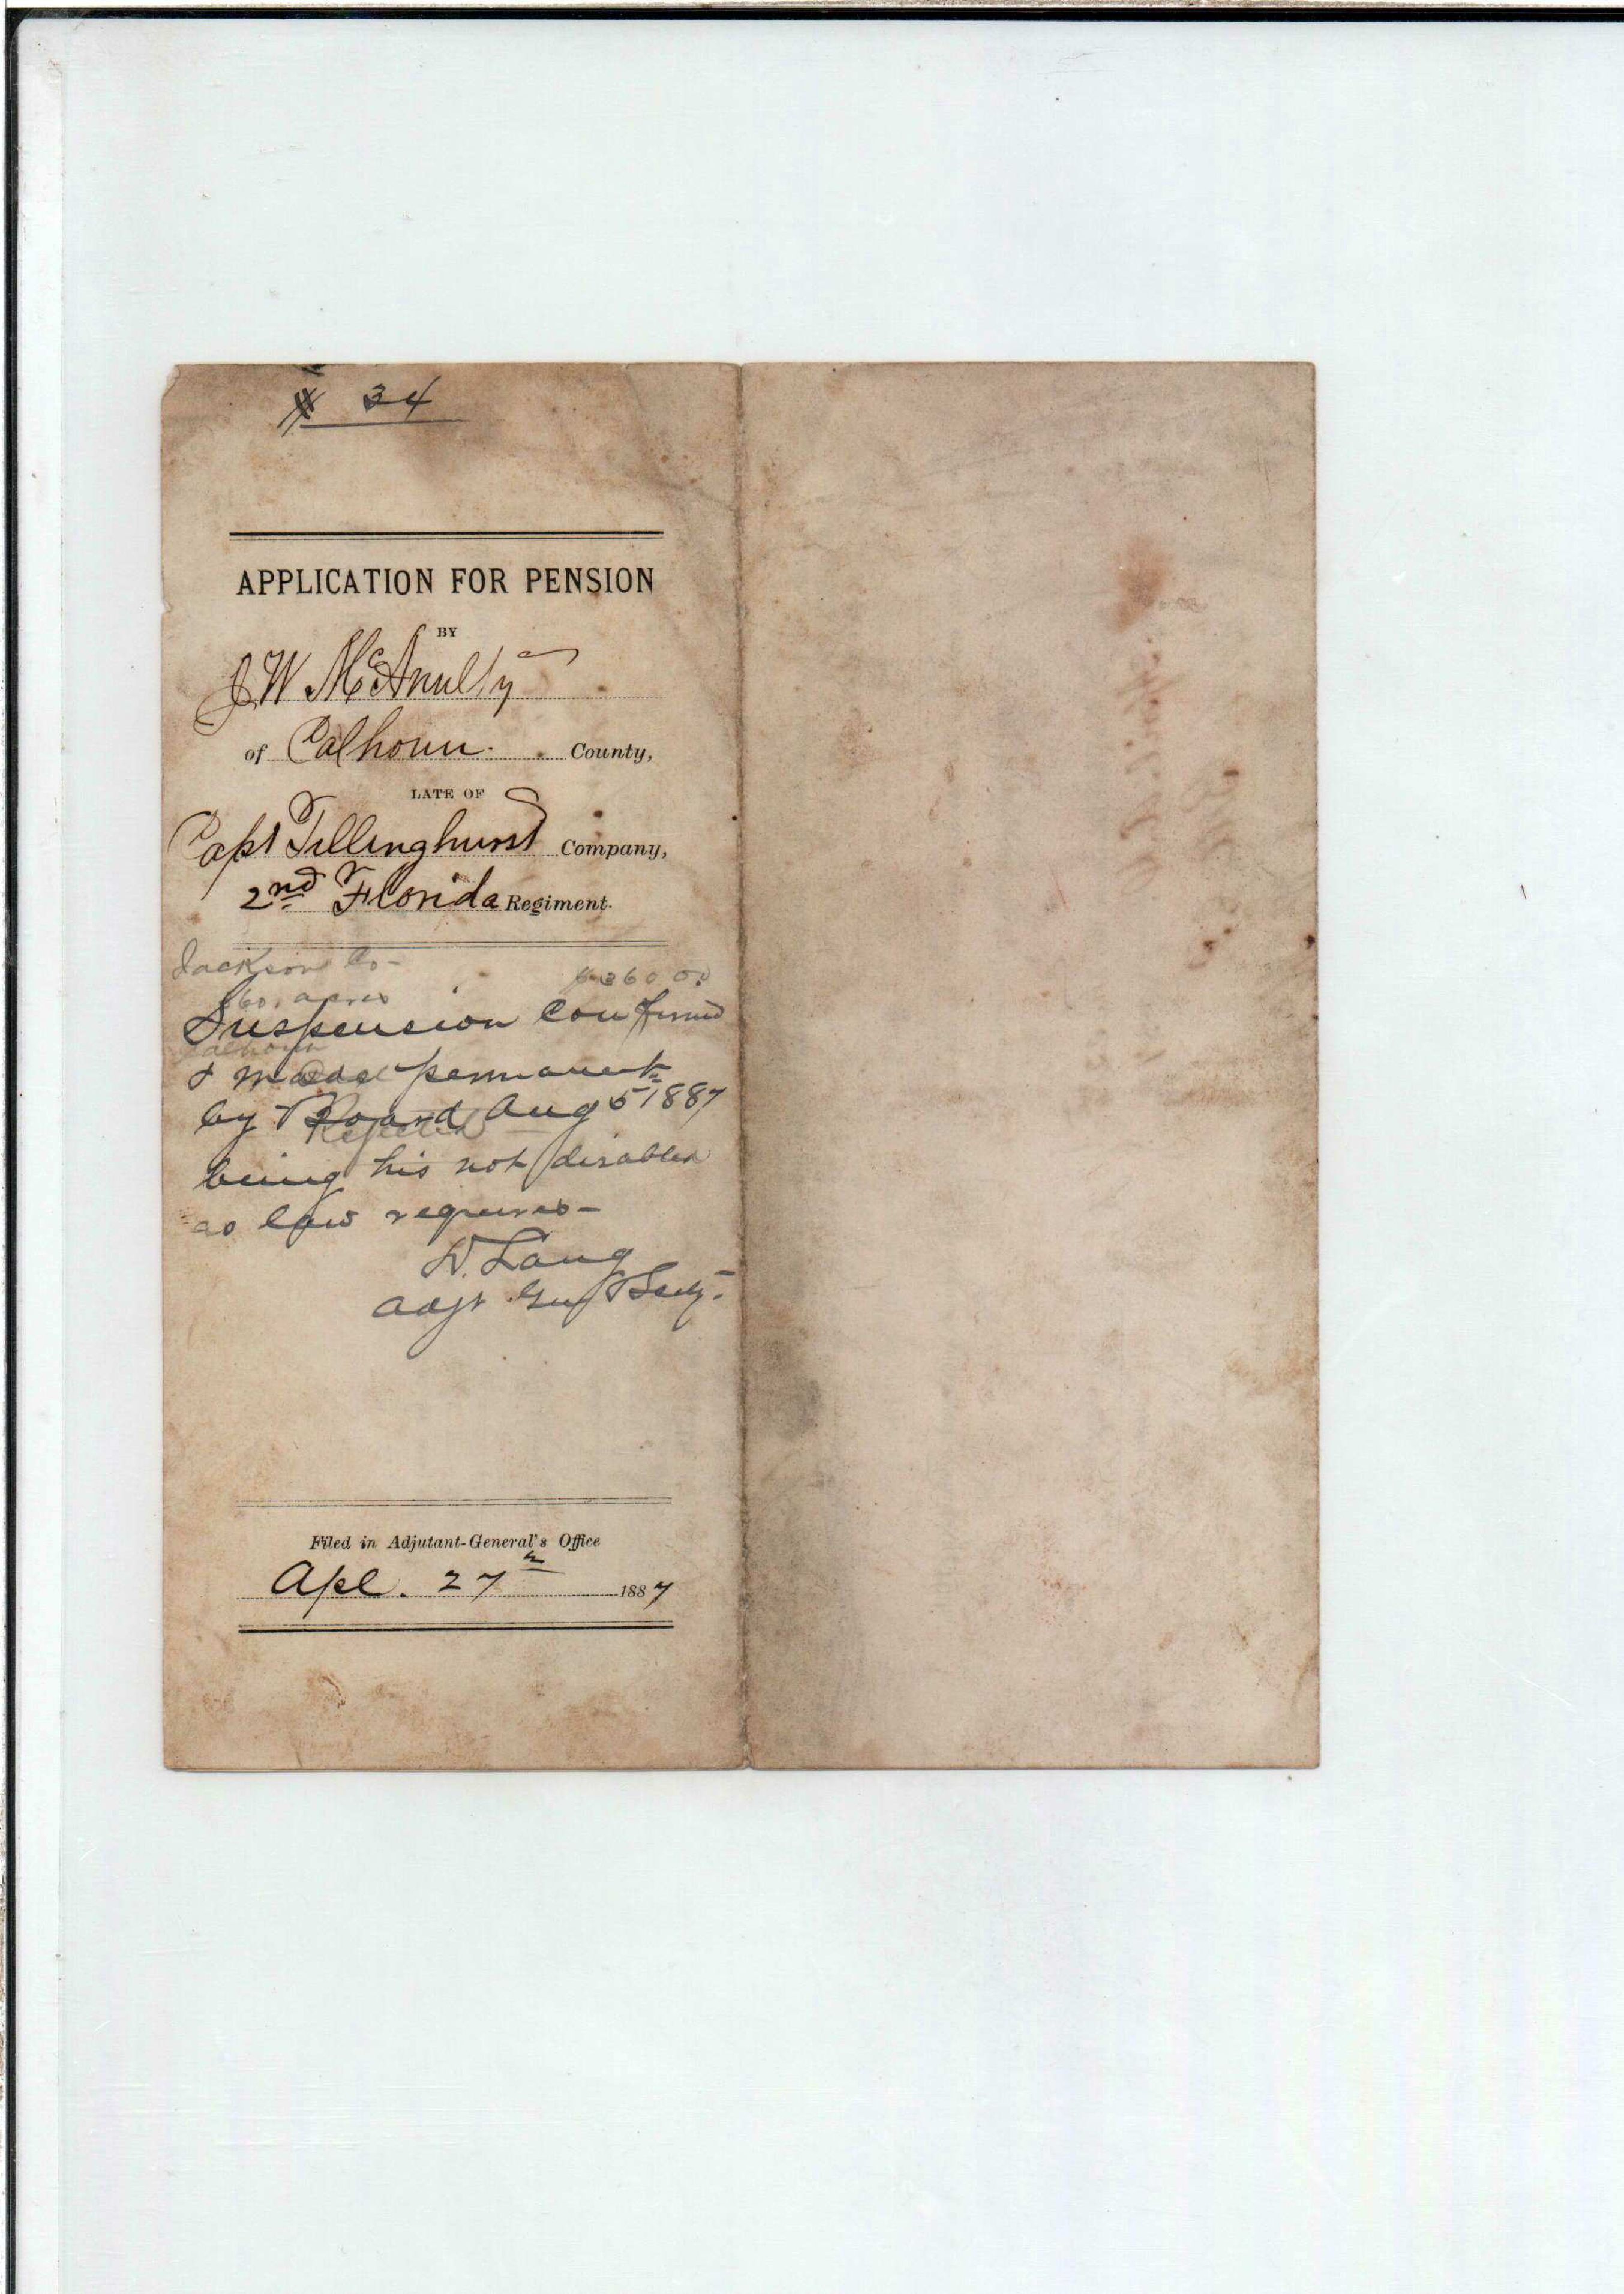 34
APPLICATION FOR PENSION
BY
J. W. McAnulty
of Calhoun. County,
LATE OF
Capt Tillinghurst Company,
2nd Florida Regiment.
Jackson Co-
360 00
160. acres
Suspension Confirmed
Calhoun
& made permanent
by Board Aug 5th 1887
Rejected
being his not disabled
as law requires-
D. Lang
Adjt Genl & Secty.
Filed in Adjutant-General's Office
Apl. 27th 1887